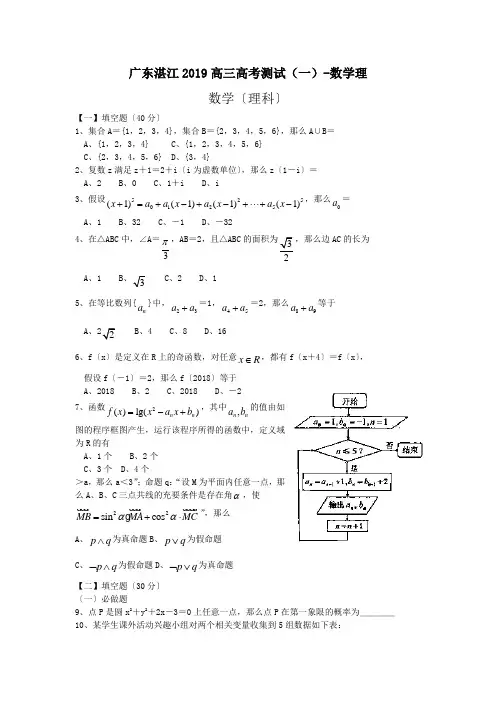 广东湛江2019高三高考测试（一）-数学理
数学〔理科〕
【一】填空题〔40分〕
1、集合A＝{1，2，3，4}，集合B＝{2，3，4，5，6}，那么A∪B＝
A、{1，2，3，4}　　C、{1，2，3，4，5，6}
C、{2，3，4，5，6}　D、{3，4}
2、复数z满足z＋1＝2＋i〔i为虚数单位〕，那么z〔1－i〕＝
A、2　B、0　C、1＋i　D、i
3、假设(x+1)⁵=a₀+a₁(x-1)+a₂(x-1)²+⋯+a₅(x-1)⁵，那么a₀＝
A、1　B、32　C、－1　D、－32
4、在△ABC中，∠A＝π/3，AB＝2，且△ABC的面积为√3/2，那么边AC的长为
A、1　B、√3　C、2　D、1
5、在等比数列{aₙ}中，a₂+a₃＝1，a₄+a₅＝2，那么a₈+a₉等于
A、2√2　B、4　C、8　D、16
6、f〔x〕是定义在R上的奇函数，对任意x∈R，都有f〔x＋4〕＝f〔x〕，
假设f〔－1〕＝2，那么f〔2018〕等于
A、2018　B、2　C、2018　D、－2
7、函数f(x)=lg(x²-aₙx+bₙ)，其中aₙ,bₙ的值由如
图的程序框图产生，运行该程序所得的函数中，定义域
为R的有
A、1个　B、2个
C、3个　D、4个
>a，那么a＜3”；命题q：“设M为平面内任意一点，那
么A、B、C三点共线的充要条件是存在角α，使
MB=sin²α·MA+cos²α·MC”，那么
A、p∧q为真命题B、p∨q为假命题
C、¬p∧q为假命题D、¬p∨q为真命题
开始
a₀=1,b₀=-1,n=1
n≤5?
否
结束
是
aₙ=aₙ₋₁+1,bₙ=bₙ₋₁+2
输出aₙ,bₙ
n=n+1
【二】填空题〔30分〕
〔一〕必做题
9、点P是圆x²＋y²＋2x－3＝0上任意一点，那么点P在第一象限的概率为________
10、某学生课外活动兴趣小组对两个相关变量收集到5组数据如下表：